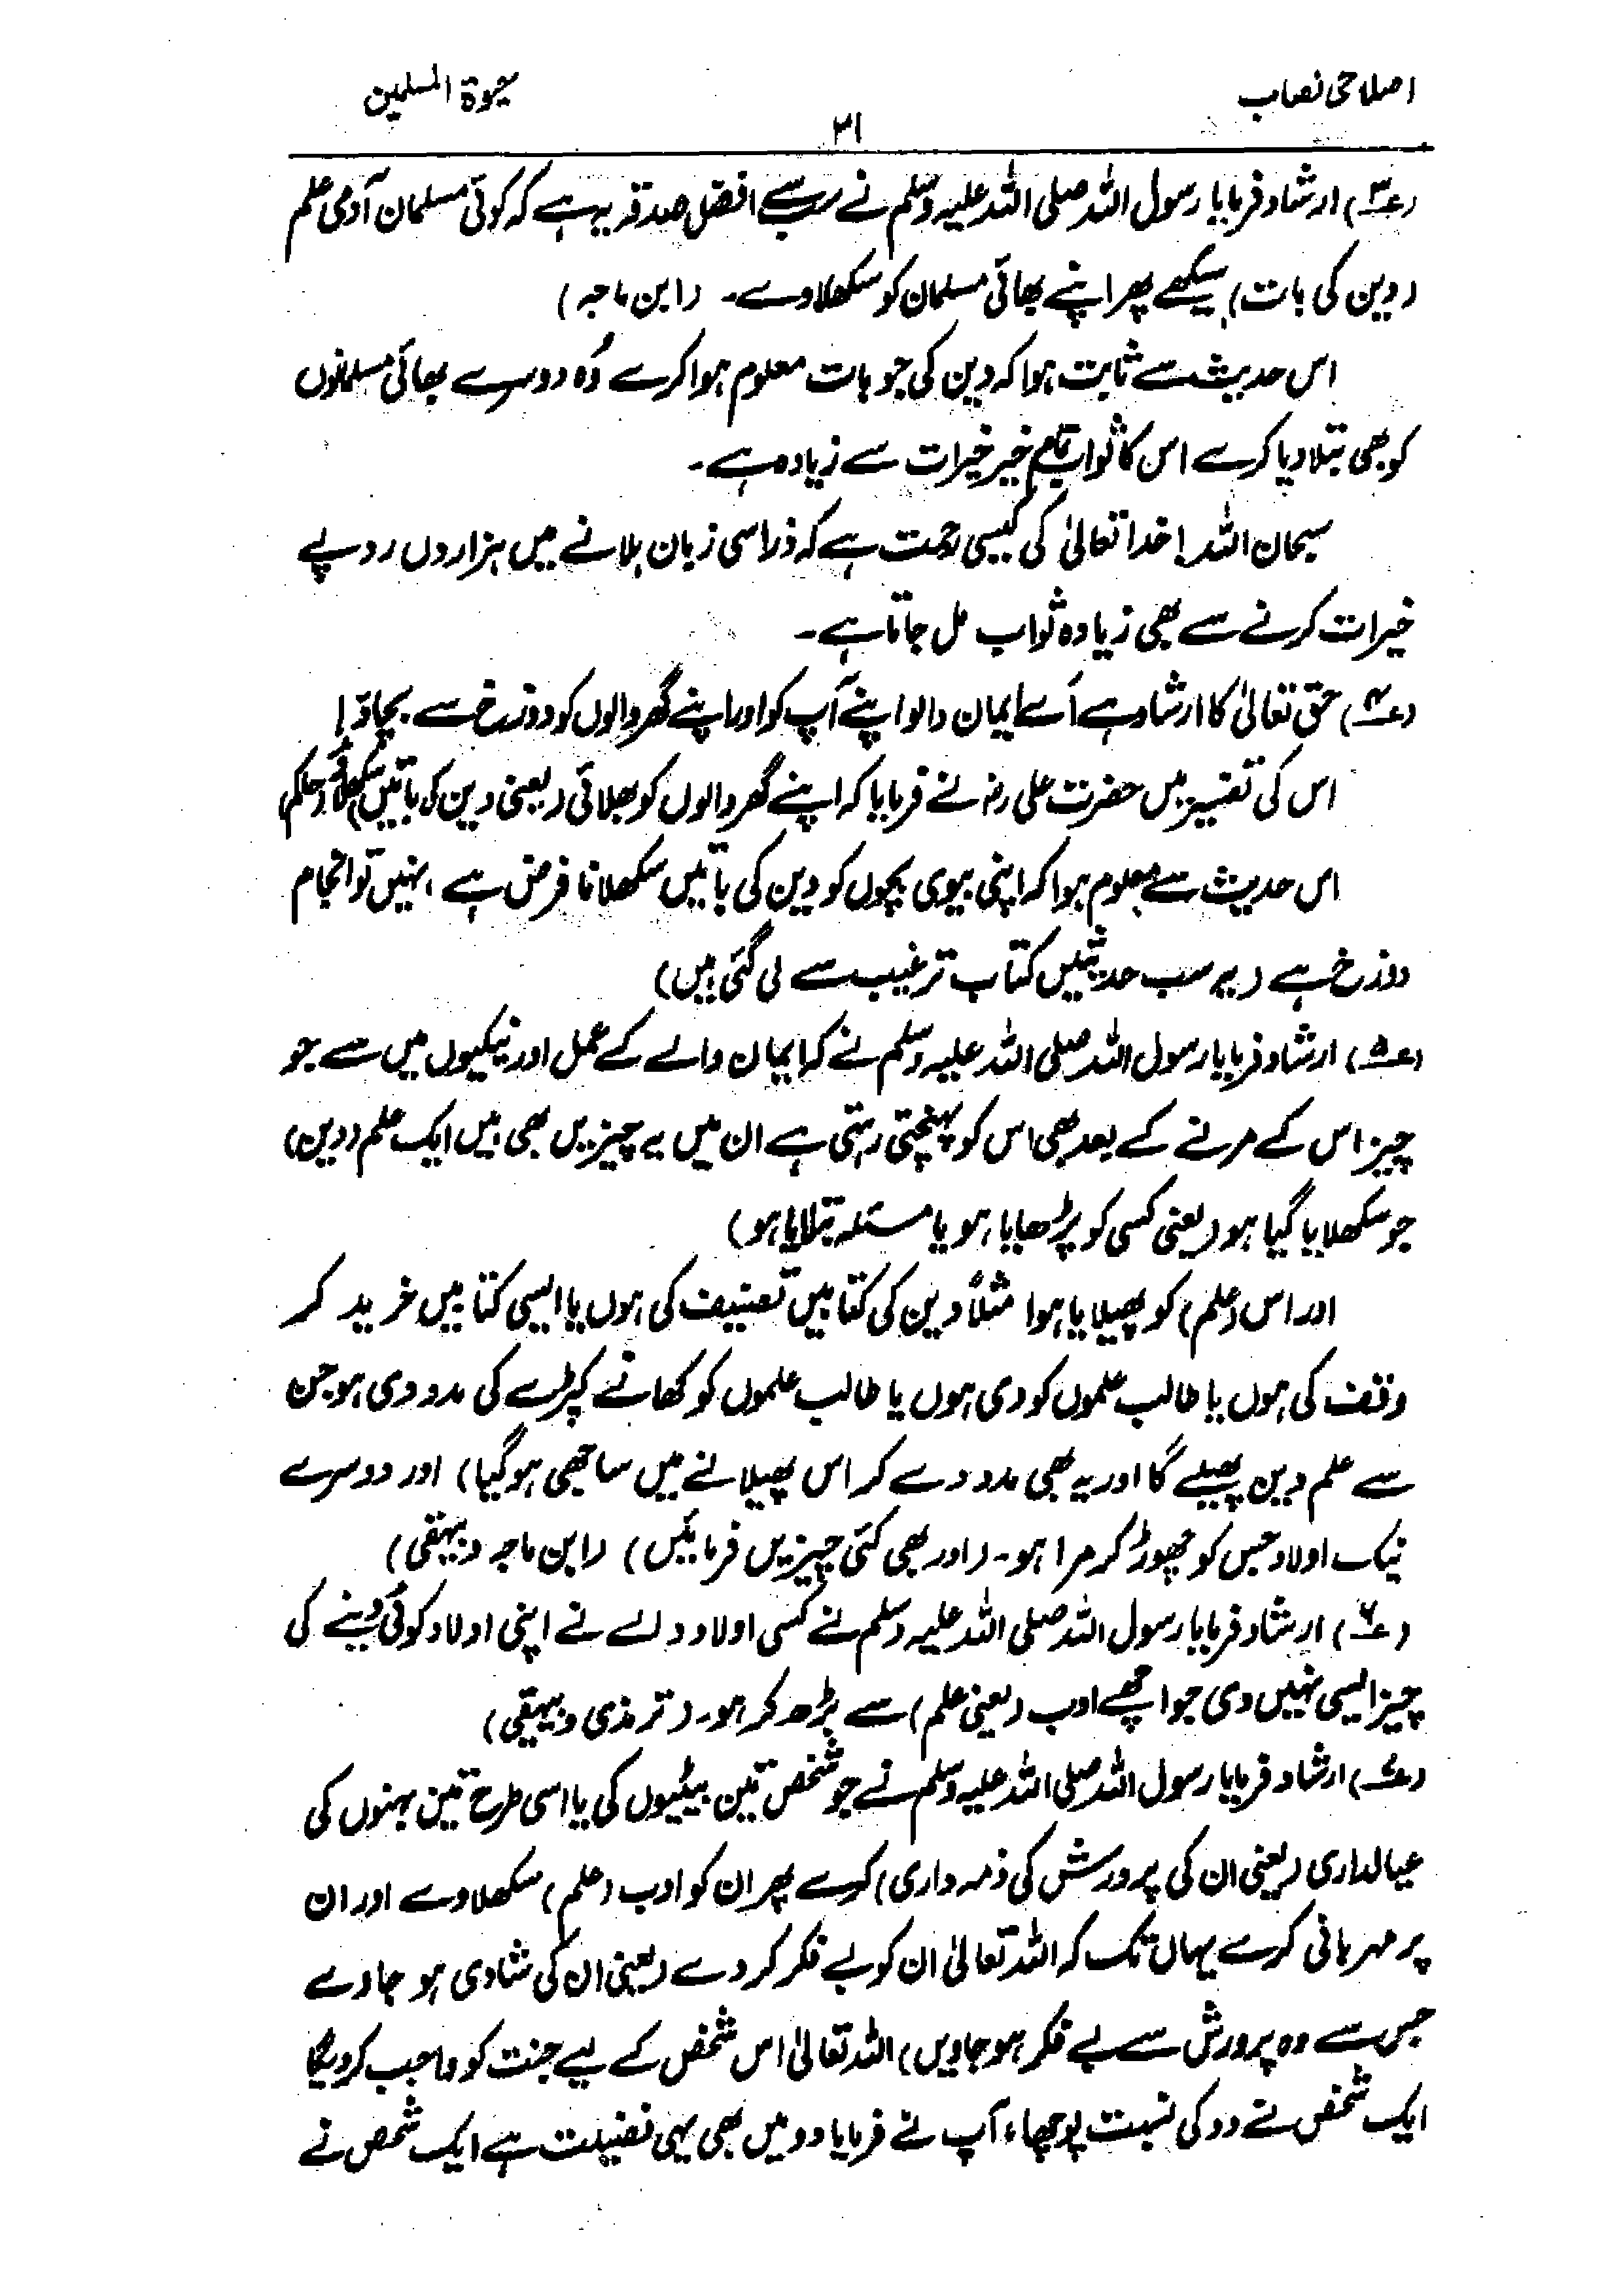 اصلاحی نصاب
حیوٰۃ المسلمین
۳۱
(۳؁) ارشاد فرمایا رسول اللہ صلی اللہ علیہ وسلم نے سب سے افضل صدقہ یہ ہے کہ کوئی مسلمان آدمی علم
(دین کی بات) سیکھے پھر اپنے بھائی مسلمان کو سکھلاوے۔ (ابن ماجہ)
اس حدیث سے ثابت ہوا کہ دین کی جو بات معلوم ہوا کرے وُہ دوسرے بھائی مسلمانوں
کو بھی بتلا دیا کرے اس کا ثواب تمام خیر خیرات سے زیادہ ہے۔
سبحان اللہ! خدا تعالیٰ کی کیسی رحمت ہے کہ ذرا سی زبان ہلانے میں ہزاروں روپے
خیرات کرنے سے بھی زیادہ ثواب مل جاتا ہے۔
(۴؁) حق تعالیٰ کا ارشاد ہے اَے ایمان والو اپنے آپ کو اور اپنے گھر والوں کو دوزخ سے بچاؤ!
اس کی تفسیر میں حضرت علی رضہ نے فرمایا کہ اپنے گھر والوں کو بھلائی (یعنی دین کی باتیں) سکھلاؤ (حاکم)
اس حدیث سے معلوم ہوا کہ اپنی بیوی بچوں کو دین کی باتیں سکھلانا فرض ہے، نہیں تو انجام
دوزخ ہے (یہ سب حدیثیں کتاب ترغیب سے لی گئی ہیں)
(۵؁) ارشاد فرمایا رسول اللہ صلی اللہ علیہ وسلم نے کہ ایمان والے کے عمل اور نیکیوں میں سے جو
چیز اس کے مرنے کے بعد بھی اس کو پہنچتی رہتی ہے ان میں یہ چیزیں بھی ہیں ایک علم (دین)
جو سکھلایا گیا ہو (یعنی کسی کو پڑھایا ہو یا مسئلہ بتلایا ہو)
اور اس (علم) کو پھیلایا ہوا مثلاً دین کی کتابیں تصنیف کی ہوں یا ایسی کتابیں خرید کر
وقف کی ہوں یا طالب علموں کو دی ہوں یا طالب علموں کو کھانے کپڑے کی مدد دی ہو جن
سے علم دین پھیلے گا اور یہ بھی مدد دے کر اس پھیلانے میں ساجھی ہوگیا) اور دوسرے
نیک اولاد جس کو چھوڑ کر مرا ہو۔ (اور بھی کئی چیزیں فرمائیں) (ابن ماجہ و بیہقی)
(۶؁) ارشاد فرمایا رسول اللہ صلی اللہ علیہ وسلم نے کسی اولاد والے نے اپنی اولاد کو کوئی دینے کی
چیز ایسی نہیں دی جو اچھے ادب (یعنی علم) سے بڑھ کر ہو۔ (ترمذی و بیہقی)
(۷؁) ارشاد فرمایا رسول اللہ صلی اللہ علیہ وسلم نے جو شخص تین بیٹیوں کی یا اسی طرح تین بہنوں کی
عیالداری (یعنی ان کی پرورش کی ذمہ داری) کرے پھر ان کو ادب (علم) سکھلاوے اور ان
پر مہربانی کرے یہاں تک کہ اللہ تعالیٰ ان کو بے فکر کردے (یعنی ان کی شادی ہو جاوے
جس سے وہ پرورش سے بے فکر ہو جاویں) اللہ تعالیٰ اس شخص کے لیے جنت کو واجب کردیگا
ایک شخص نے دو کی نسبت پوچھا، آپ نے فرمایا دو میں بھی یہی فضیلت ہے ایک شخص نے